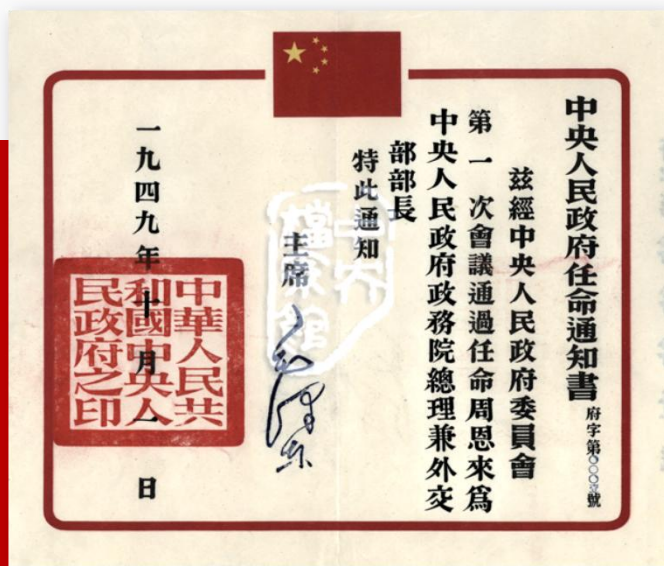 中央人民政府任命通知書
府字第〇〇〇號
茲經中央人民政府委員會
第一次會議通過任命周恩來爲
中央人民政府政務院總理兼外交
部部長
特此通知
主席 毛澤東
一九四九年十月一日
中華人民共
和國中央人
民政府之印
中央
檔案館